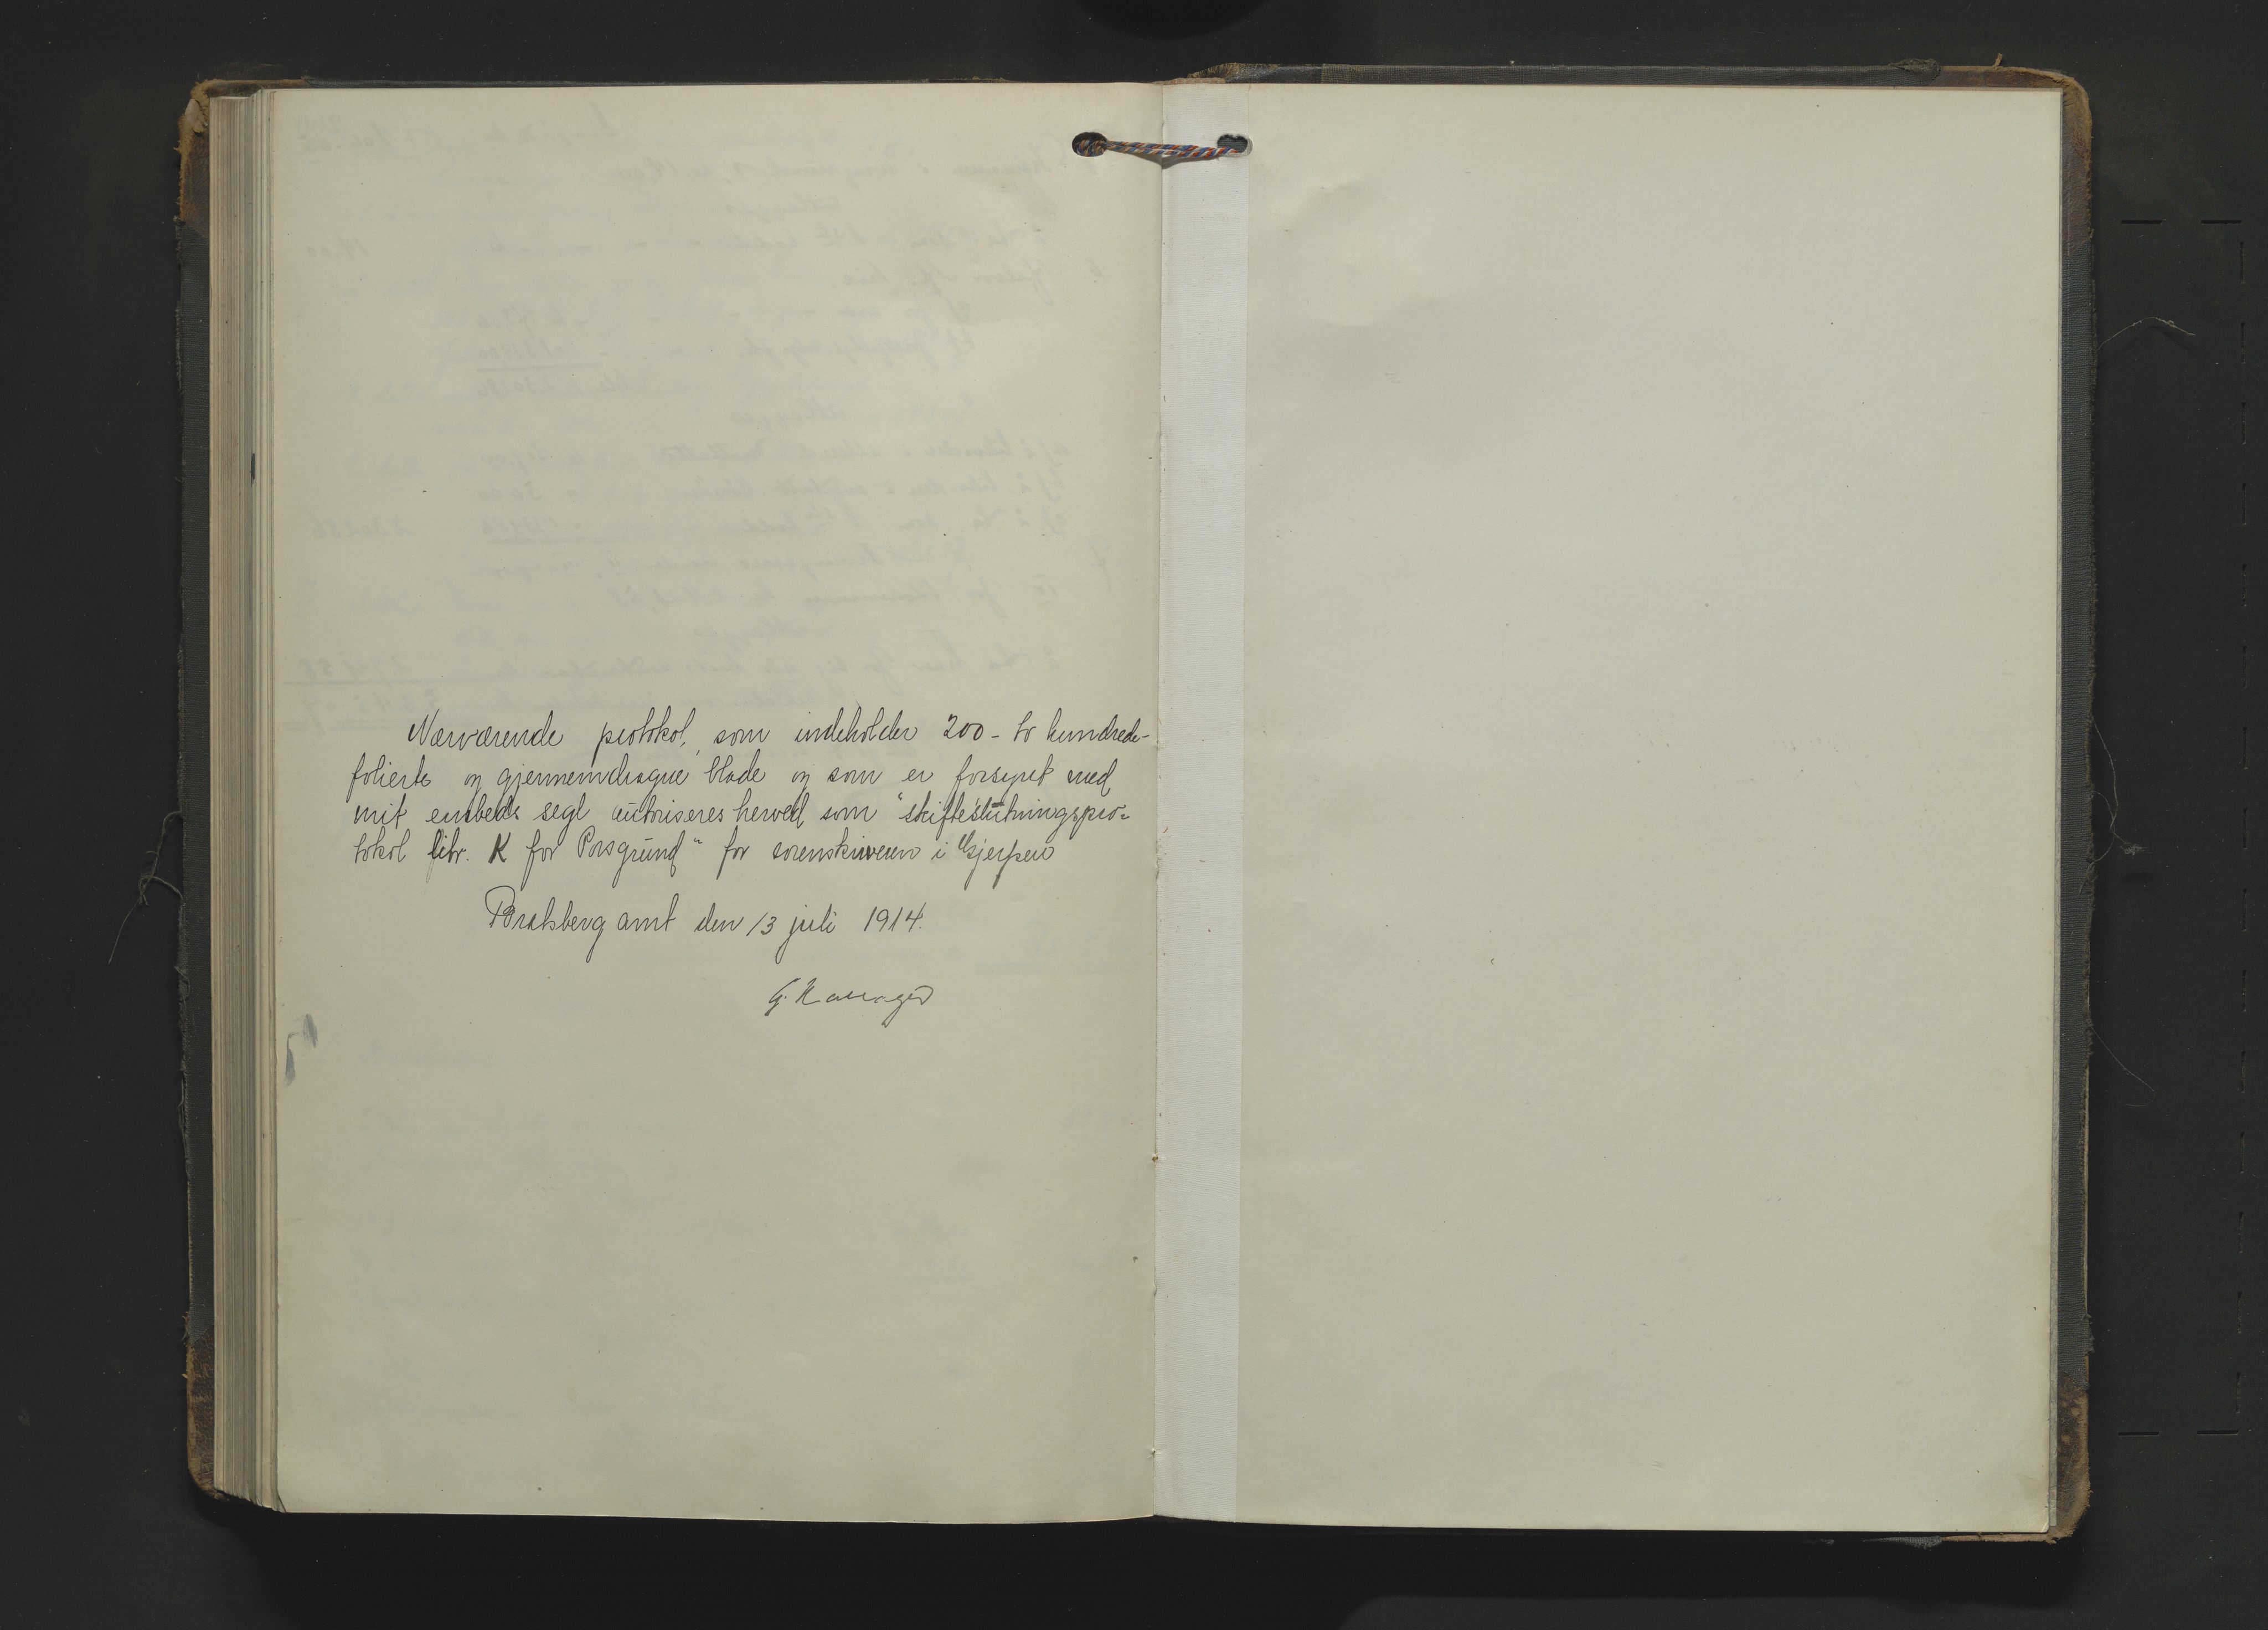 Nærværende protokol, som indeholder 200 - to hundrede -
folierte og gjennemdragne blade og som er forsynet med
mit embeds segl autoriseres herved som "skifteslutningspro-
tokol litr. K for Porsgrund" for sorenskriveren i Gjerpen
Bratsberg amt den 13 juli 1914.
G.